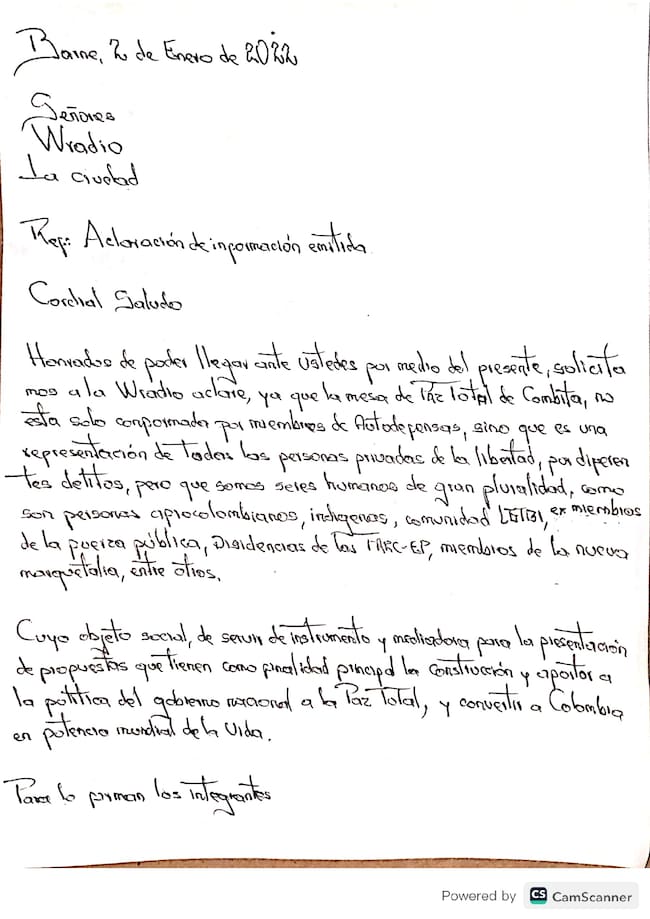 Barne, 2 de Enero de 2022
Señores
Wradio
La ciudad
Ref: Aclaración de información emitida
Cordial Saludo
Honrados de poder llegar ante ustedes por medio del presente, solicita
mos a la Wradio aclare, ya que la mesa de PAZ Total de Combita, no
esta solo conformada por miembros de Autodefensas, sino que es una
representación de Todas las personas privadas de la libertad, por diferen
tes delitos, pero que somos seres humanos de gran pluralidad, como
son personas afrocolombianos, indigenas, comunidad LGTBI, ex miembros
de la fuerza pública, Disidencias de las FARC-EP, miembros de la nueva
marquetalia, entre otros.
Cuyo objeto social, de servir de instrumento y mediadora para la presentación
de propuestas que tienen como finalidad principal la construcción y aportar a
la política del gobierno nacional a la Paz Total, y convertir a Colombia
en potencia mundial de la Vida.
Para lo firman los integrantes
Powered by CS CamScanner